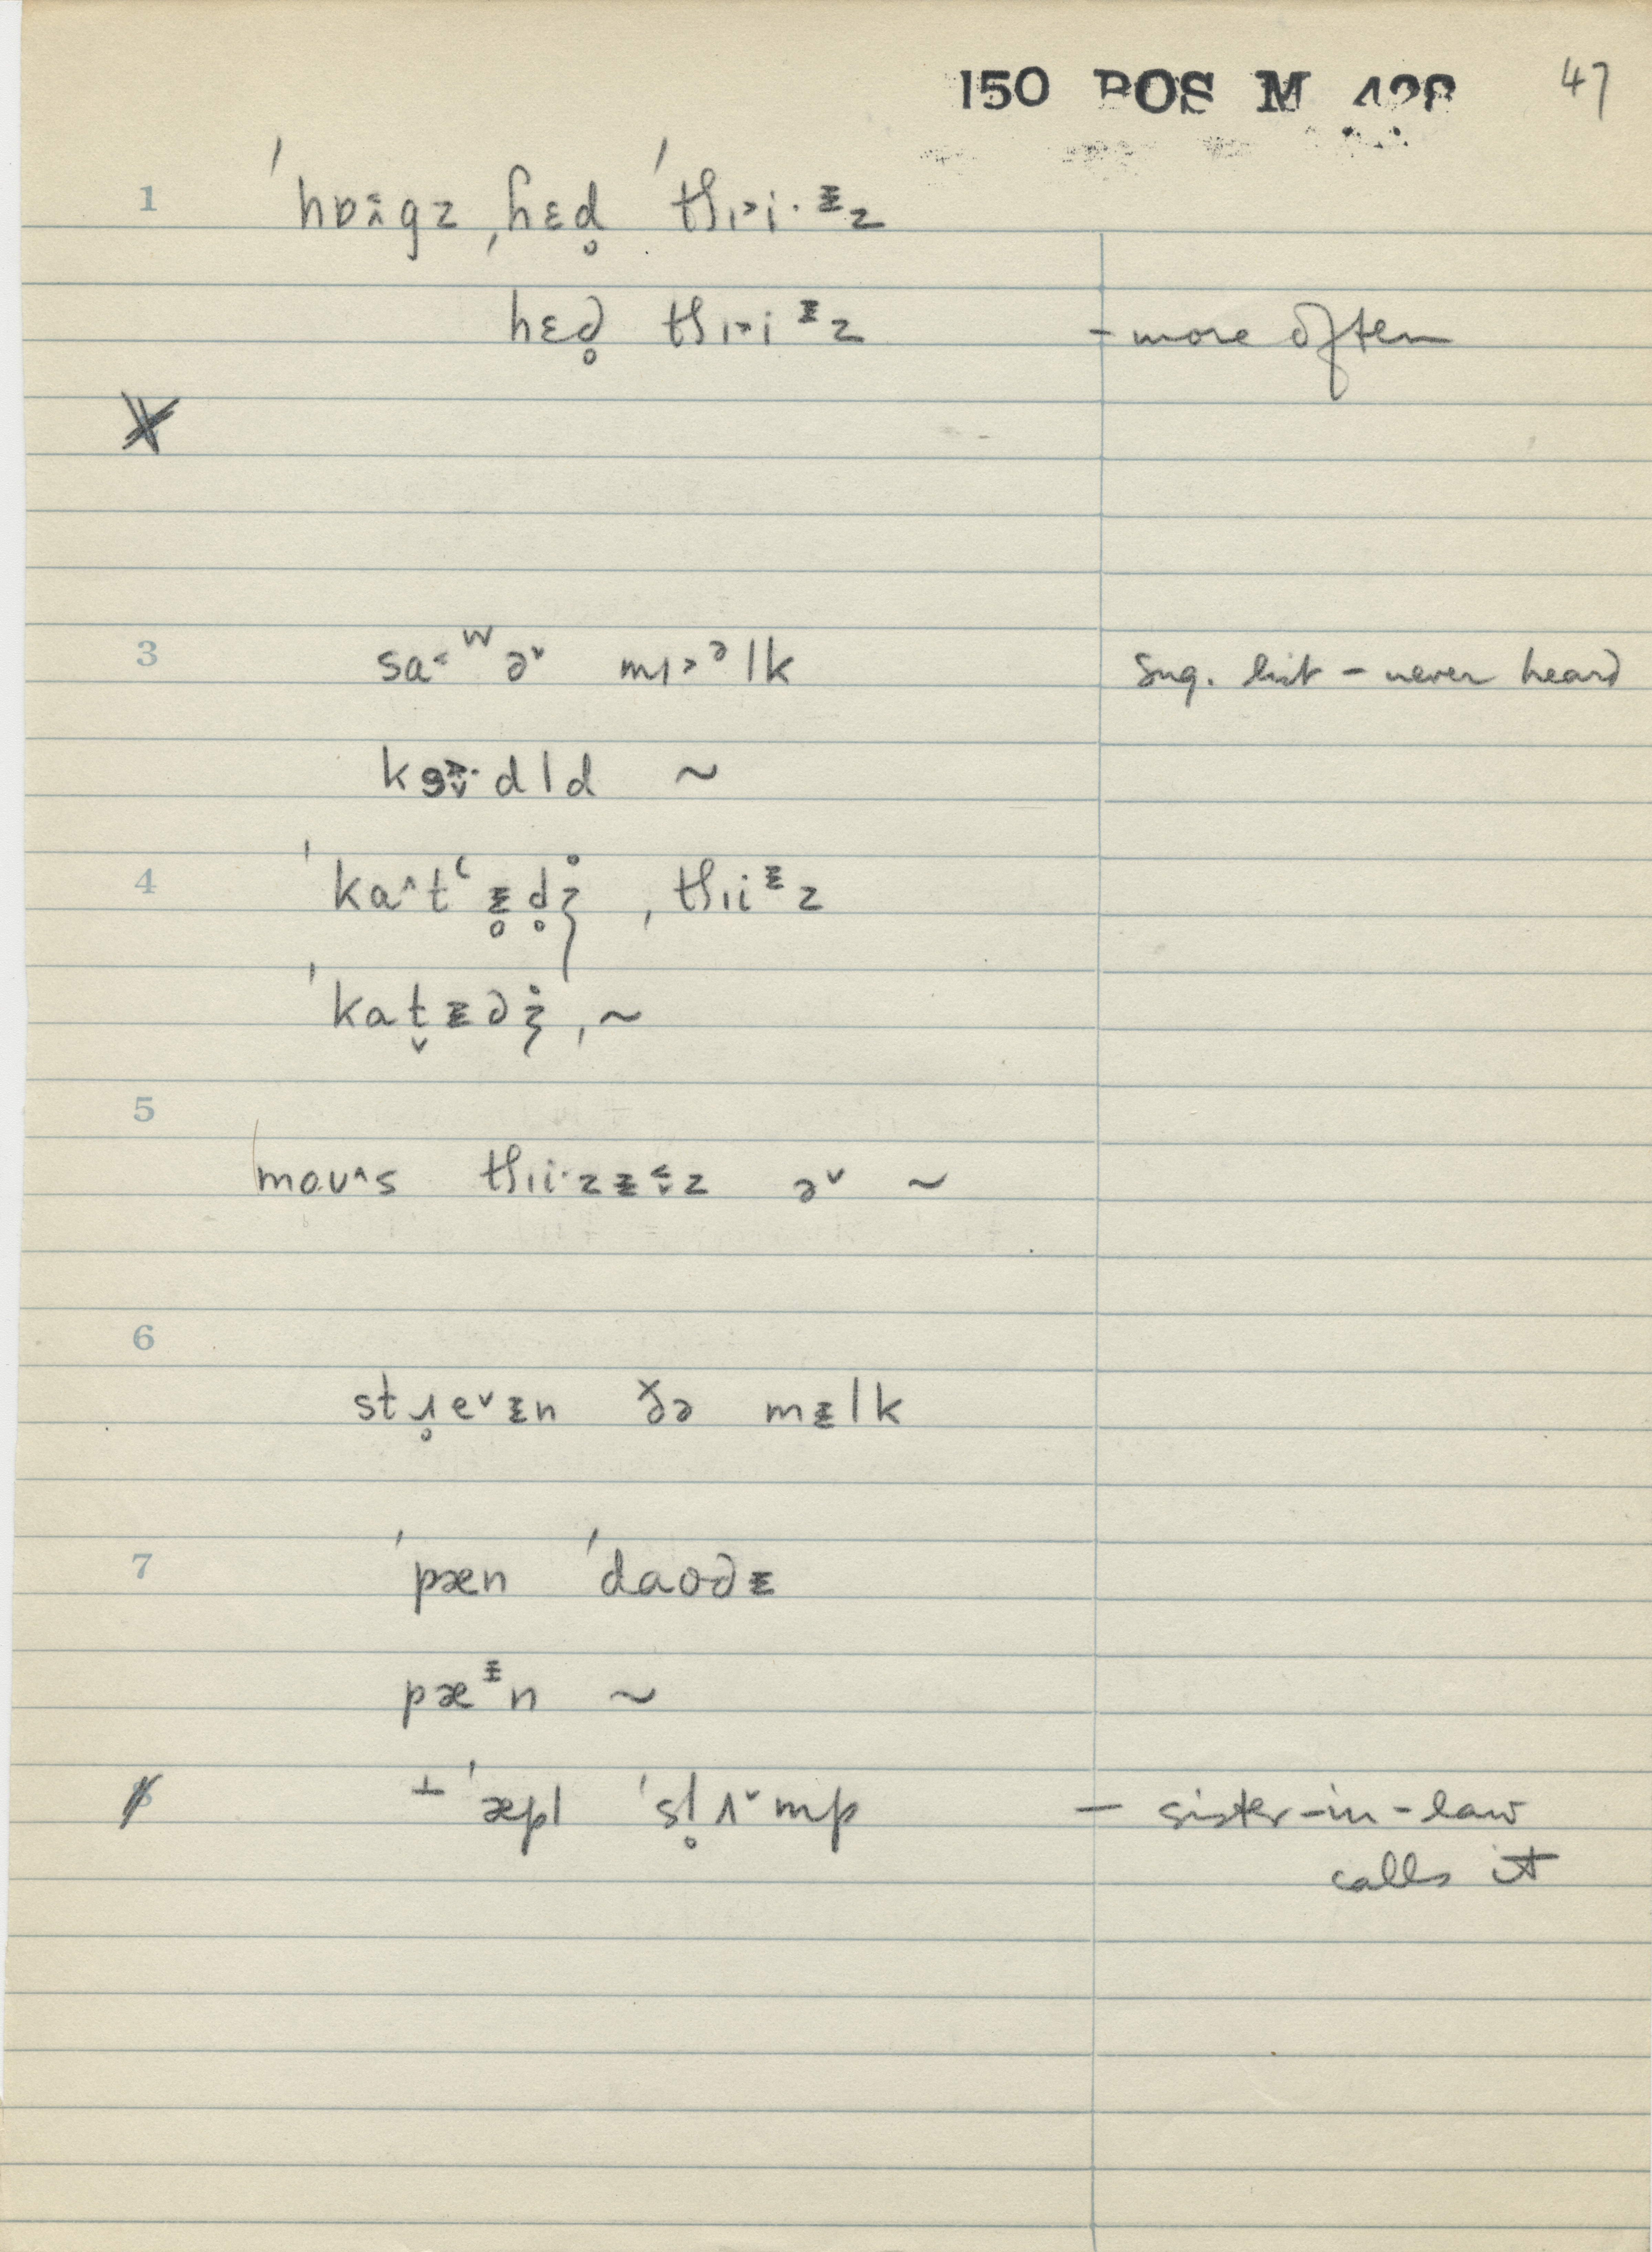 150 POS M 428 47
1 ˈhɒʌ̂gz ˌhɛd̥ ˈtʃɪ˃i·ᵻz
hɛd̥ tʃɪ˃iᵻz - more often
3 sa˂ʷə˅ mɪ˃ᵊlk Sug. list - never heard
dld ~
4 ˈka˄tʻᵻ̥d̥ʒ̊ ˌtʃɪiᵻz
ˈkat̬ᵻdʒ̊ ˌ~
5
moʊ˄s tʃɪi·zᵻ˂z ə˅ ~
6
stɹ̥e˅ᵻn ðə mᵻlk
7 ˈpæn ˈdaodᵻ
pæᵻn ~
8 ⊥ ˈæpl ˈsl̥ʌ˅mp — sister-in-law
calls it